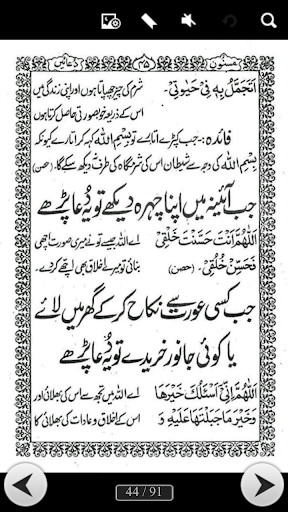 مسنون ۳۵ دعائیں
اَتَجَمَّلُ بِهٖ فِیْ حَیٰوتِیْ۔ شرم کی چیز چھپاتا ہوں اور اپنی زندگی میں
اس کے ذریعہ خوبصورتی حاصل کرتا ہوں
فائدہ :۔ جب کپڑے اتارے تو بِسْمِ اللّٰه کہہ کر اتارے کیونکہ
بِسْمِ اللّٰه کی وجہ سے شیطان اس کی شرمگاہ کی طرف نہ دیکھ سکے گا (حصن)
جب آئینہ میں اپنا چہرہ دیکھے تو یہ دُعا پڑھے
اَللّٰهُمَّ اَنْتَ حَسَّنْتَ خَلْقِیْ اے اللہ جیسے تو نے میری صورت اچھی
فَحَسِّنْ خُلُقِیْ۔ (حصن) بنائی تو میرے اخلاق بھی اچھے کر دے۔
جب کسی عورت سے نکاح کر کے گھر میں لائے
یا کوئی جانور خریدے تو یہ دُعا پڑھے
اَللّٰهُمَّ اِنِّیْ اَسْئَلُكَ خَیْرَهَا اے اللہ میں تجھ سے اس کی بھلائی اور
وَخَیْرَ مَا جَبَلْتَهَا عَلَیْهِ وَ اس کے اخلاق و عادات کی بھلائی کا
44 / 91